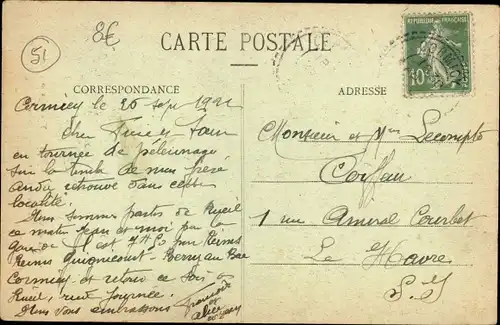 51
8€
CARTE POSTALE
CORRESPONDANCE
ADRESSE
REPUBLIQUE FRANÇAISE
10
Cormicy le 25 sept 1921
Cher
en tournée de pélerinage
sur la tombe de mon frère
André retrouvé dans cette
localité.
Nous sommes partis de Rueil
ce matin Jean et moi par la
gare de l'Est 7h50 pour Reims
Reims Guignicourt Berry au Bac
Cormicy et retour ce soir
Rueil, rude journée.
Nous vous embrassons
Monsieur et Mme Lecompte
Coiffeur
1 rue Amiral Courbet
Le Havre
S. I